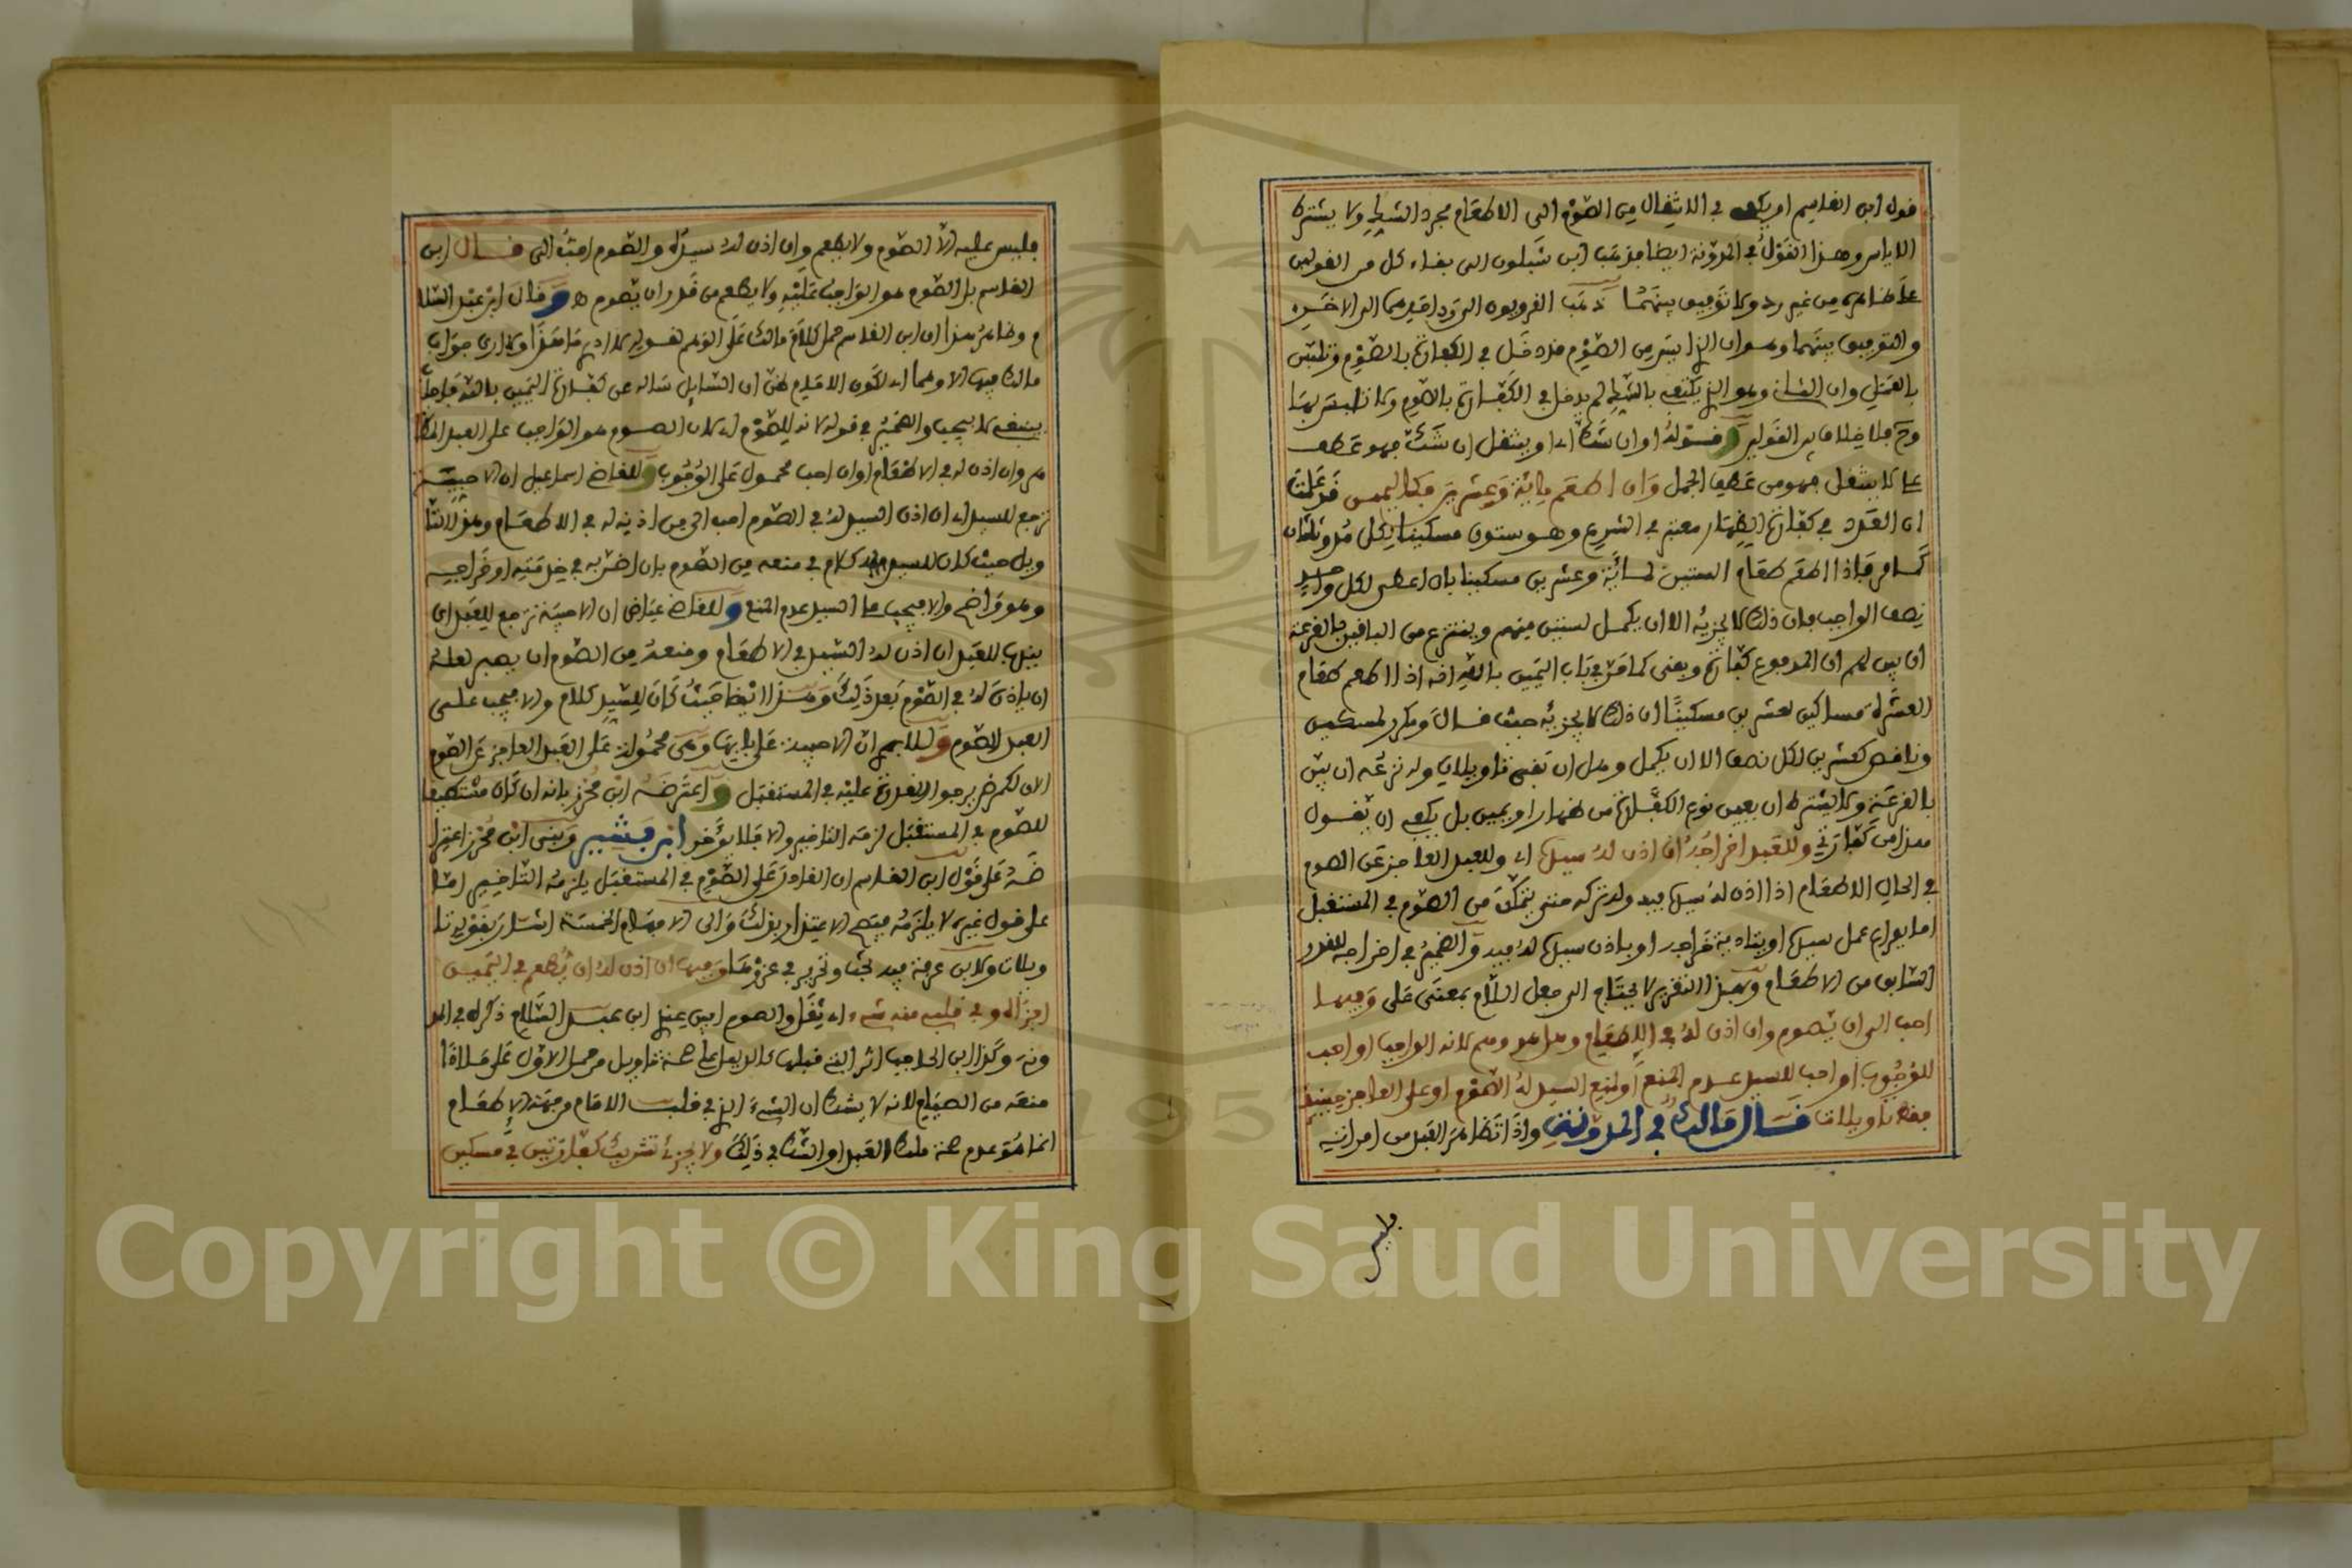 قول ابن القاسم او يكفي في الانتقال من الصوم الى الاطعام مجرد الشك ولا يشترط
الاياس وهذا القول في المدونة ايضا فذهب ابن شبلون الى بقاء كل من القولين
على ظاهره من غير رد ولا توفيق بينهما ذهب القرويون الى رد احدهما الى الاخر
والتوفيق بينهما وهو ان الذي ايس من الصوم قد دخل في الكفارة بالصوم وتلبس
بالعمل وان الثاني وهو الذي يكتفي بالشك لم يدخل في الكفارة بالصوم ولا تلبس بها
وح فلا خلاف بين القولين وقوله او ان شك اي او ينتقل ان شك فهو عطف
على لا ينتقل فهو من عطف الجمل وان اطعم مائة وعشرين فكاليمين قد علمت
ان العدد في كفارة الظهار معتبر في الشرع وهو ستون مسكينا لكل مد وثلثان
كما مر فاذا اطعم طعام الستين لمائة وعشرين مسكينا بان اعطى لكل واحد
نصف الواجب فان ذلك لا يجزيه الا ان يكمل لستين منهم وينتزع من الباقين بالقرعة
ان بين لهم ان المدفوع كفارة وبقي كما مر في باب اليمين بالله انه اذا اطعم طعام
العشرة مساكين لعشرين مسكينا ان ذلك لا يجزيه حيث قال ومكرر لمسكين
وناقص كعشرين لكل نصف الا ان يكمل وهل ان بقي تاويلان وله نزعه ان بين
بالقرعة ولا يشترط ان يعين نوع الكفارة من ظهار او يمين بل يكفي ان يقول
هذا من كفارتي وللعبد اخراجه ان اذن له سيده اي وللعبد العاجز عن الصوم
في الحال الاطعام اذا اذن له سيده فيه وله تركه متى يتمكن من الصوم في المستقبل
اما بفراغ عمل سيده او بتادية خراجه او باذن سيده له فيه والضمير في اخراجه للقدر
السابق من الاطعام وبهذا التقرير لا يحتاج الى جعل اللام بمعنى على وفيها
احب الي ان يصوم وان اذن له في الاطعام وهل هو وهم لانه الواجب او احب
للوجوب او احب للسيد عدم المنع او لمنع السيد له الصوم او على العاجز حينئذ
فقط تاويلات قال مالك في المدونة واذا تظاهر العبد من امراته
فليس
فليس عليه الا الصوم ولا يطعم وان اذن له سيده والصوم احب الي قال ابن
القاسم بل الصوم هو الواجب عليه ولا يطعم من قدر ان يصوم ه وقال ابن عبد السلا
م وظاهر هذا ان ابن القاسم حمل كلام مالك على الوهم لقوله لا ادري ما هذا ولا ارى جواب
مالك فيها الا وهما اي لكون الامام ظن ان السائل ساله عن كفارة اليمين بالله فاجاب
والضمير في قوله لانه للصوم اي لان الصوم هو الواجب على العبد المظا
هر وان اذن له في الاطعام او ان احب محمول على الوجوب وللقاضي اسماعيل ان الاحبية
ترجع للسيد اي ان اذن السيد له في الصوم احب الي من اذنه له في الاطعام وهذا التا
ويل حيث كان للسيد كلام في منعه من الصوم بان اضر به في خدمته او خراجه
وهو واضح والا فيجب على السيد عدم المنع وللقاضي عياض ان الاحبية ترجع للعبد اي
ينبغي للعبد ان اذن له السيد في الاطعام ومنعه من الصوم ان يصبر لعله
ان ياذن له في الصوم بعد ذلك وهذا ايضا حيث كان للسيد كلام والا فيجب على
العبد الصوم وللابهري ان الاحبية على بابها وهي محمولة على العبد العاجز عن الصوم
الان لكمرض يرجو القدرة عليه في المستقبل واعترضه ابن محرز بانه ان كان مستطيعا
للصوم في المستقبل لزمه التاخير والا فلا يؤخر ابن بشير وبنى ابن محرز اعترا
ضه على قول ابن القاسم ان القادر على الصوم في المستقبل يلزمه التاخير اما
على قول غيره لا يلزمه فيصح الاعتذار بذلك والى الاوهام الخمسة اشار بقوله تا
ويلات ولابن عرفة فيه بحث وتحرير في عزوها وفيها ان اذن له ان يطعم في اليمين
اجزاه وفي قلبي منه شيء اي ثقل والصوم ابين عندي ابن عبد السلام ذكره في المد
ونة وكذا ابن الحاجب اثر التي قبلها كالدليل على صحة تاويل من حمل الاول على ما اذا
منعه من الصيام لانه لا يشك ان الشيء الذي في قلب الامام من جهة الاطعام
انما هو عدم صحة ملك العبد او الشك في ذلك ولا يجزئ تشريك كفارتين في مسكين
Copyright © King Saud University
1957